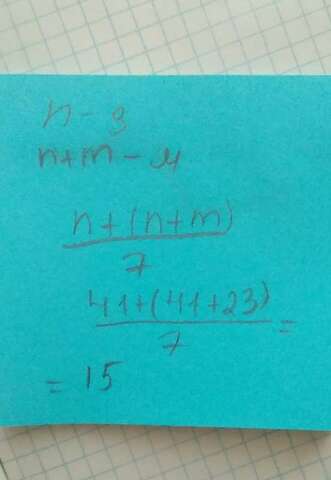 n - д
n+m - м
n+(n+m)
7
41+(41+23)
7
=
= 15